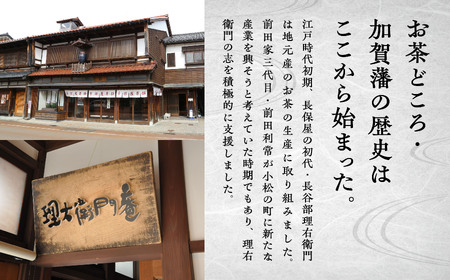 お茶どころ・
加賀藩の歴史は
ここから始まった。
江戸時代初期、長保屋の初代・長谷部理右衛門
は地元産のお茶の生産に取り組みました。
前田家三代目・前田利常が小松の町に新たな
産業を興そうと考えていた時期でもあり、理右
衛門の志を積極的に支援しました。
理右衛門庵